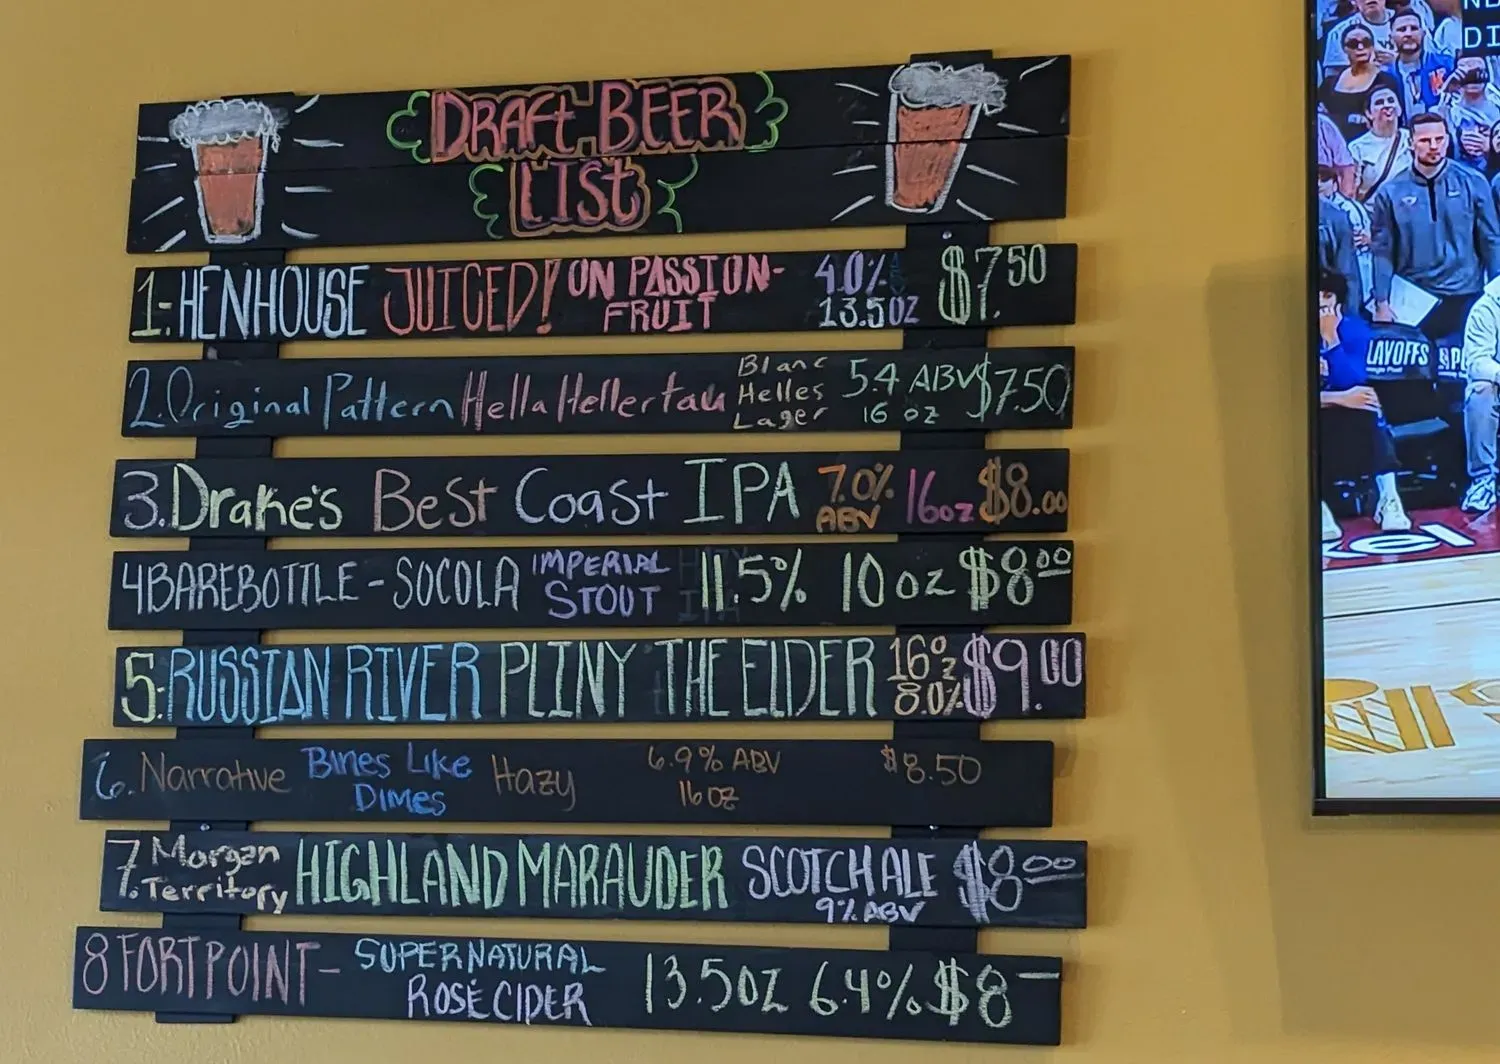 DRAFT BEER
LIST
1- HENHOUSE JUICED! ON PASSION-
FRUIT 4.0% 13.5OZ $7.50
2. Original Pattern Hella Hellertau Blanc
Helles
Lager 5.4 ABV 16 oz $7.50
3. Drake's Best Coast IPA 7.0%
ABV 16oz $8.00
4 BAREBOTTLE - SOCOLA IMPERIAL
STOUT 11.5% 10 oz $8.00
5. RUSSIAN RIVER PLINY THE ELDER 16oz
8.0% $9.00
6. Narrative BINES LIKE
DIMES Hazy 6.9% ABV
16 oz $8.50
7. Morgan
Territory HIGHLAND MARAUDER SCOTCH ALE
9% ABV $8.00
8 FORT POINT - SUPERNATURAL
ROSÉ CIDER 13.5OZ 6.4% $8-
DI
LAYOFFS